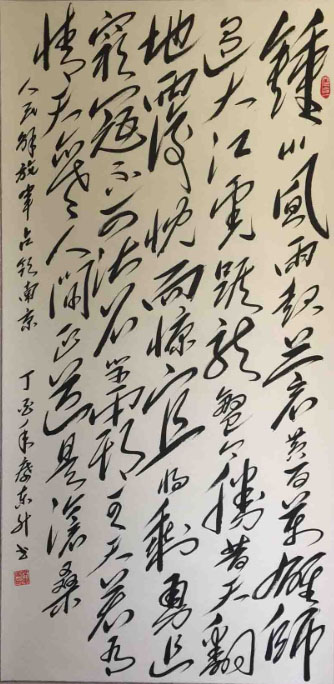 鍾山風雨起蒼黄百萬雄師
過大江虎踞龍盤今勝昔天翻
地覆慨而慷宜将剩勇追
窮寇不可沽名學霸王天若有
情天亦老人間正道是滄桑
人民解放軍占領南京 丁酉年 东升书